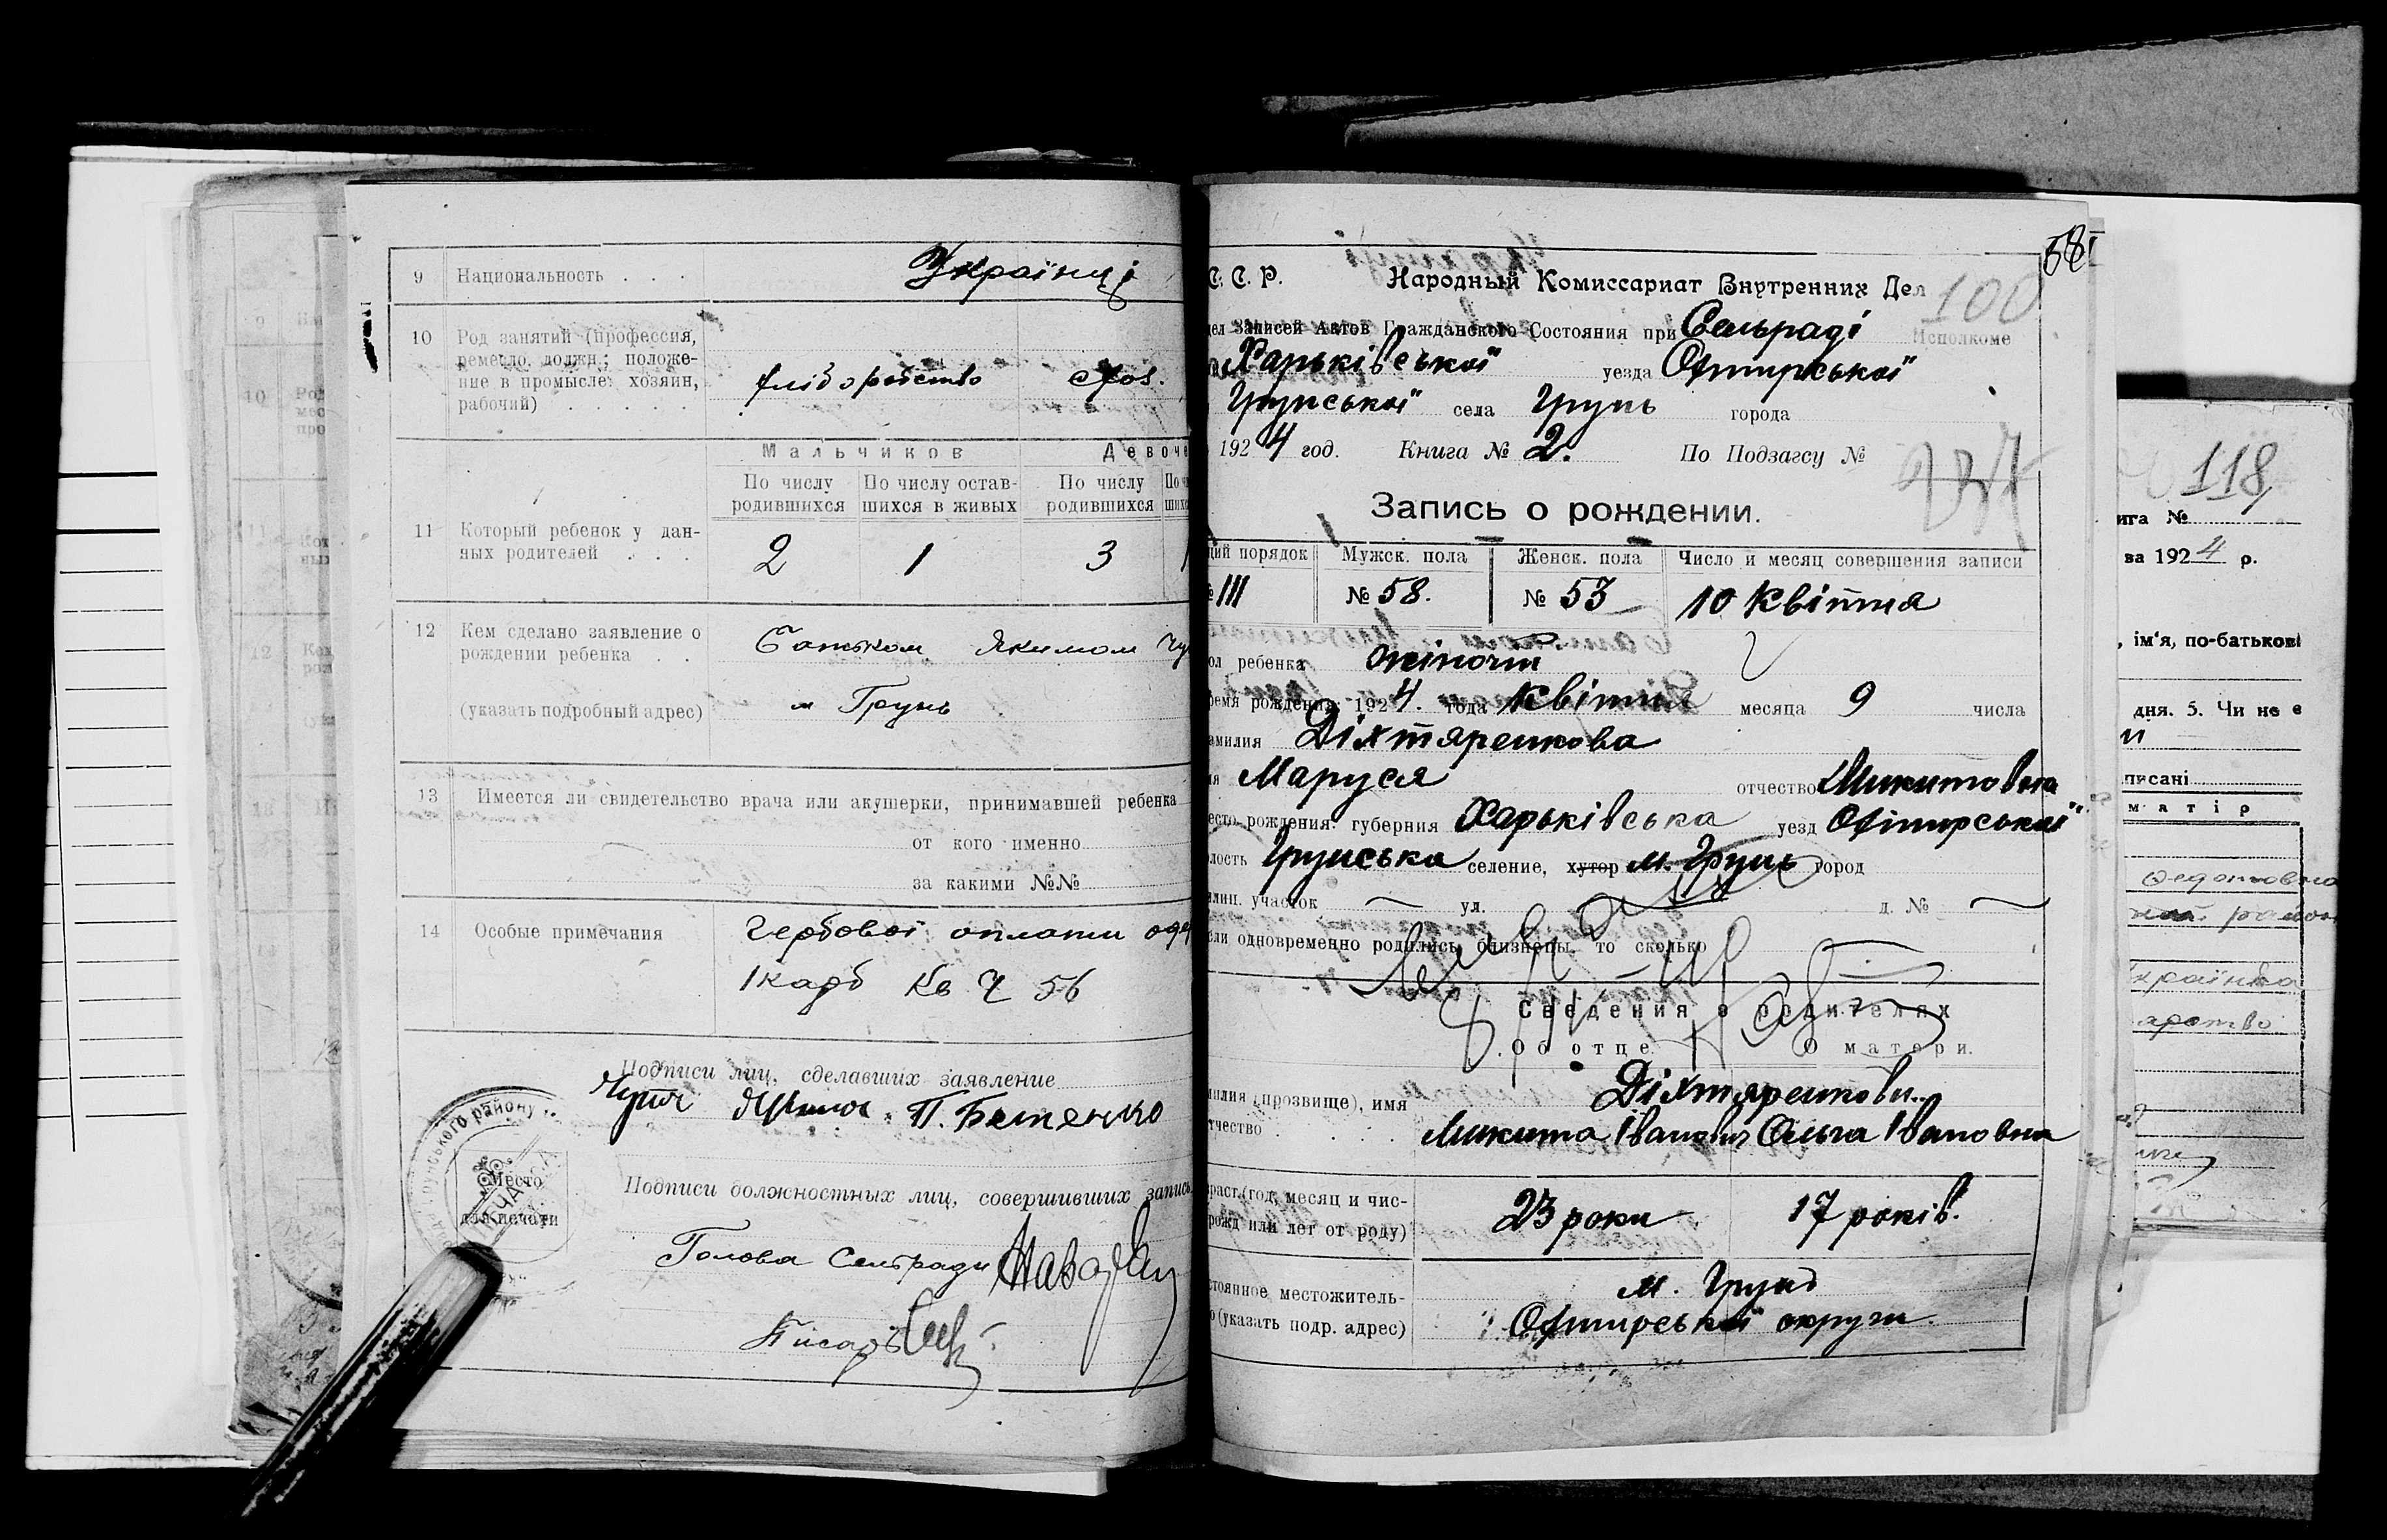 9 Национальность . . . Українці
10 Род занятий (профессия,
ремесло, должн.; положе-
ние в промысле: хозяин, хліборобство
рабочий) . . . . .
Мальчиков Девоче
По числу По числу остав- По числу
родившихся шихся в живых родившихся
11 Который ребенок у дан-
ных родителей . . . 2 1 3 1
12 Кем сделано заявление о Батьком Якимом
рождении ребенка . .
(указать подробный адрес) м Грунь
13 Имеется ли свидетельство врача или акушерки, принимавшей ребенка
от кого именно
за какими №№
14 Особые примечания Гербової оплати
1 карб Кв Ч 56
Подписи лиц, сделавших заявление
П. Бетенко
Место
для печати
Подписи должностных лиц, совершивших запись
Голова Сельради
Писарь
58
С. С. Р. Народный Комиссариат Внутренних Дел 100
дел Записей Актов Гражданского Состояния при Сельраді Исполкоме
Харьківської уезда Охтирської
Грунської села Грунь города
1924 год. Книга № 2. По Подзагсу №
Запись о рождении.
ций порядок Мужск. пола Женск. пола Число и месяц совершения записи
№ 111 № 58. № 53 10 Квітня
ол ребенка жіночт
ремя рождения: 1924. года Квітня месяца 9 числа
амилия Діхтяренкова
мя Маруся отчество Микитовна
есто рождения: губерния Харьківська уезд Охтирської
лость Грунська селение, хутор м. Грунь город
лиц. участок — ул. д. № —
сли одновременно родились близнецы, то сколько
Сведения о родителях
Об отце. О матери.
милия (прозвище), имя Діхтяренкови
тчество . . . . . Микита Іванович Ольга Івановна
раст (год, месяц и чис-
рожд или лет от роду) 23 роки 17 років.
стоянное местожитель- м. Грунь
о (указать подр. адрес) Охтирської округи
118,
ига №
ва 1924 р.
, ім'я, по-батькові
дня. 5. Чи не є
писані
матір
країнка